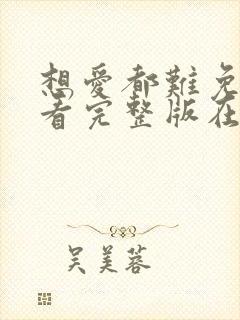 想愛都難免
看完整版在
吴美蓉